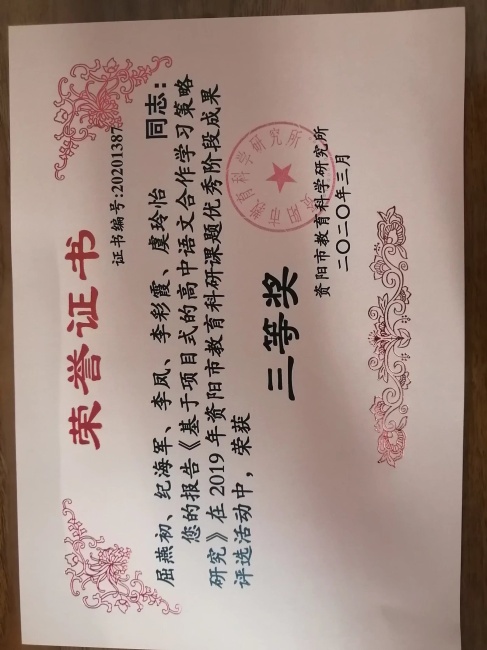 荣誉证书
证书编号:20201387
屈燕初、纪海军、李凤、李彩霞、虞玲怡 同志:
您的报告《基于项目式的高中语文合作学习策略
研究》在2019年资阳市教育科研课题优秀阶段成果
评选活动中，荣获
三等奖
资阳市教育科学研究所
资阳市教育科学研究所
二〇二〇年三月